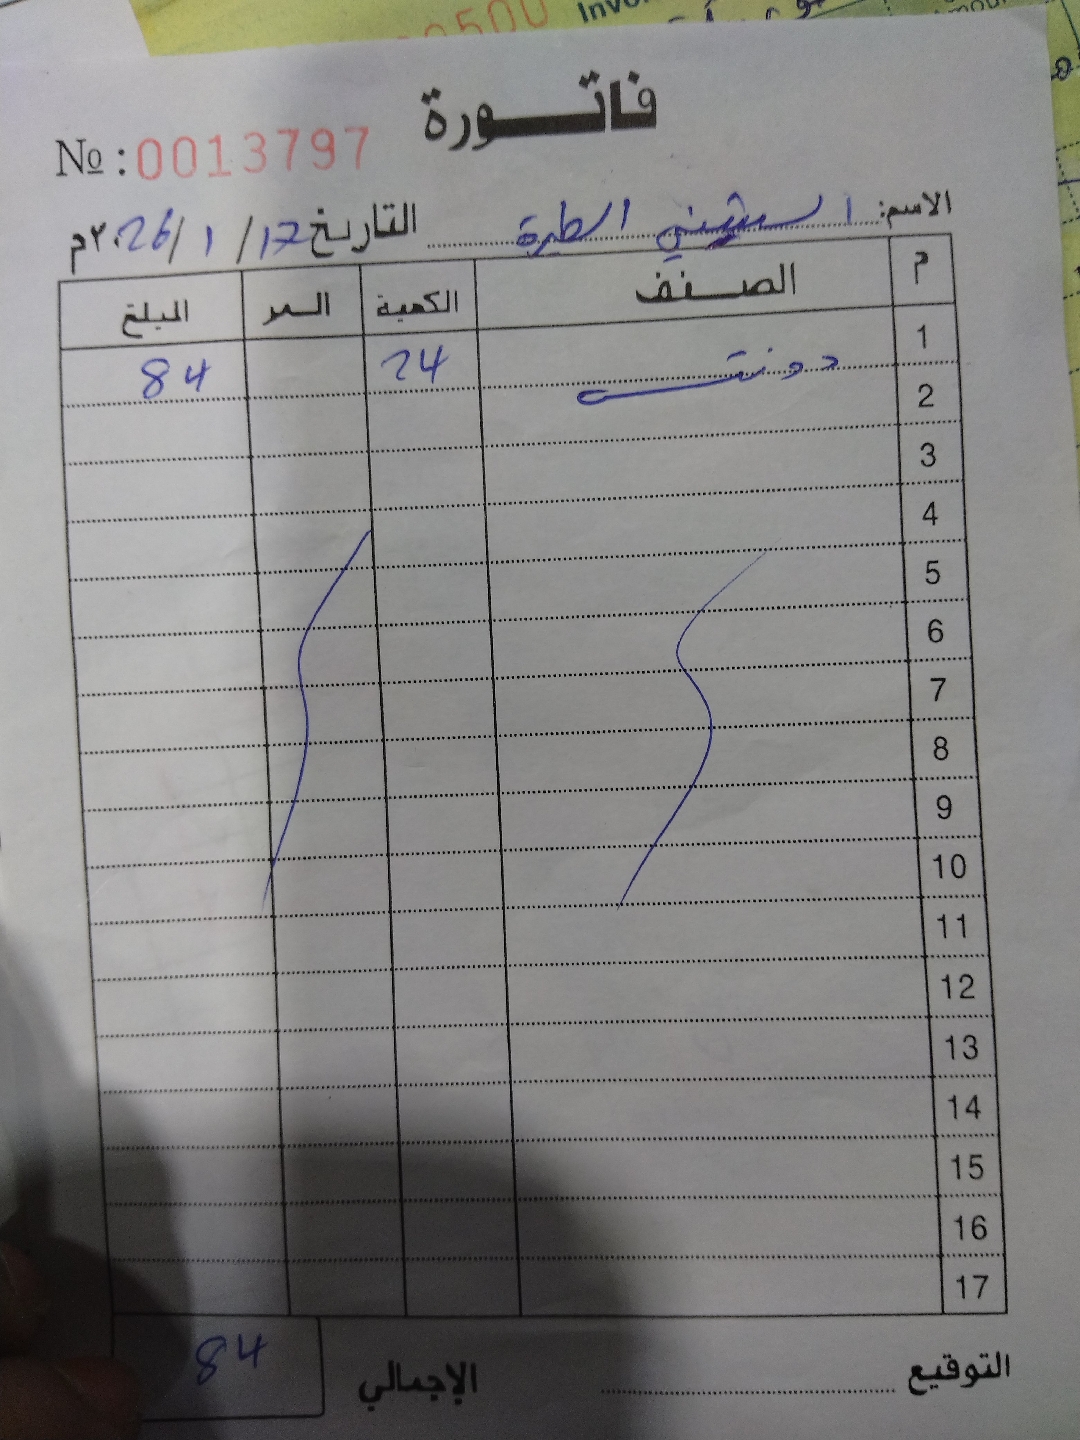 Invo
0500
فاتـــورة
№ : 0013797
الاسم: الشيني الطيرة التاريخ 17 / 1 / 2026م
م الصـنف الكمية السعر المبلغ
1 دونتس 24 84
2
3
4
5
6
7
8
9
10
11
12
13
14
15
16
17
التوقيع الإجمالي 84